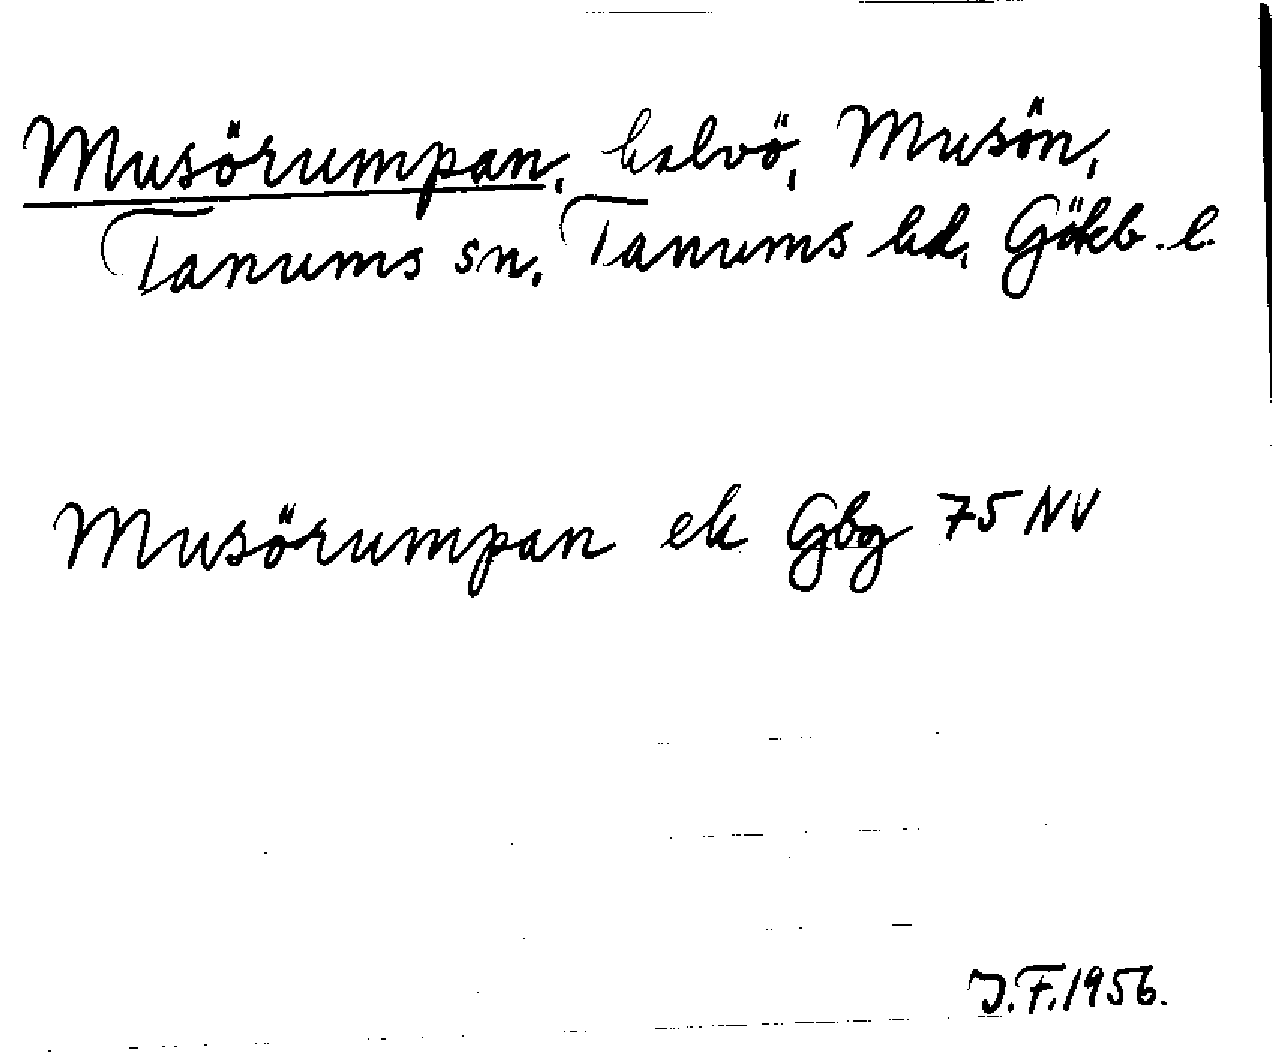 Musörumpan, halvö, Musön,
Tanums sn, Tanums hd, Gökb. l.
Musörumpan ek Gbg 75 NV
J.F. 1956.